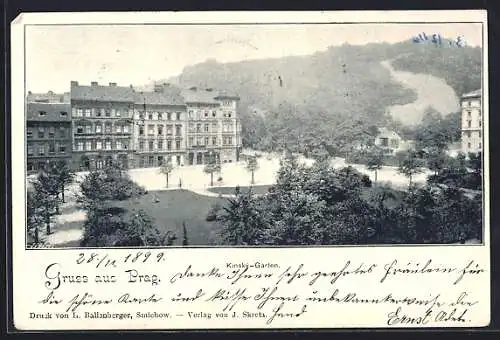 Kinský-Garten.
28/11 1899.
Gruss aus Prag.
Danke Ihnen sehr geehrtes Fräulein für
die schöne Karte und küsse Ihnen unbekannterweise die
Hand
Ernst
Druck von L. Ballenberger, Smichow. — Verlag von J. Skreta.